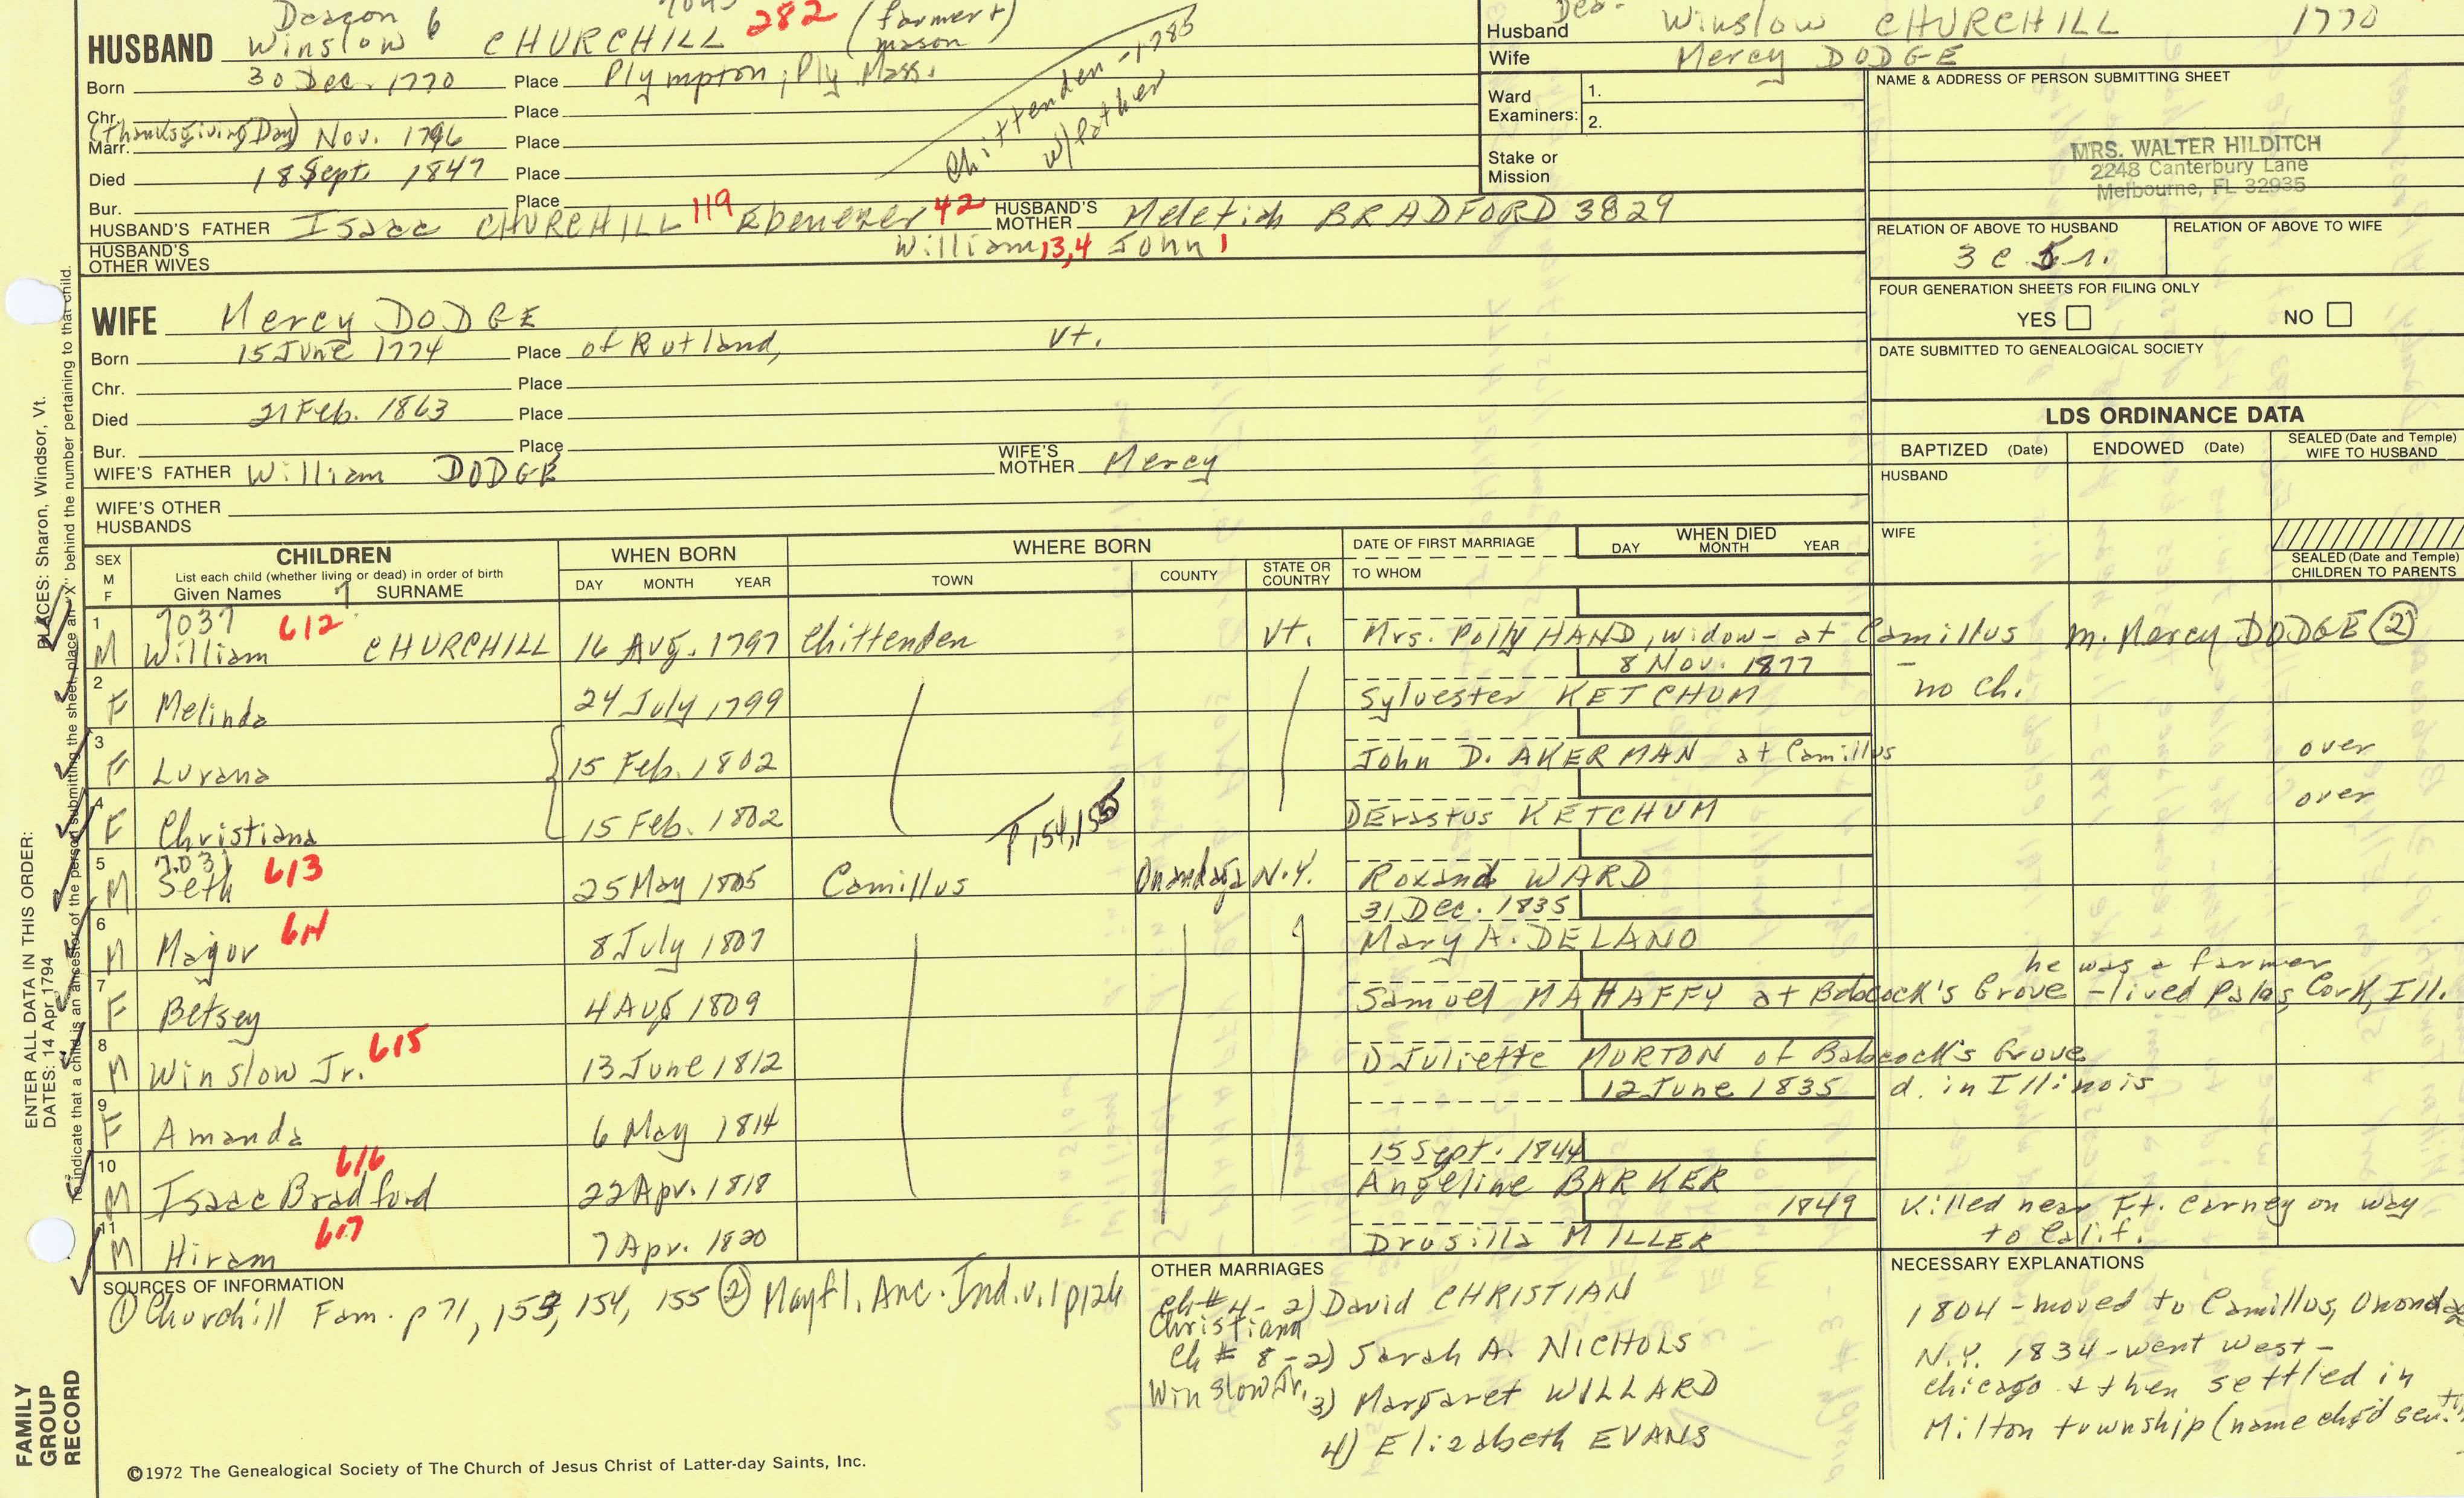 Deacon
HUSBAND Winslow 6 CHURCHILL 282 (farmer +
mason
Born 30 Dec. 1770 Place Plympton, Ply. Mass.
Chr. Place
(Thanksgiving Day)
Marr. Nov. 1796 Place
Died 18 Sept. 1847 Place
Bur. Place
Chittenden - 1785
w/father
HUSBAND'S FATHER Isaac CHURCHILL 119 Ebenezer 42 HUSBAND'S MOTHER Meletiah BRADFORD 3829
HUSBAND'S OTHER WIVES William 13,4 John 1
Husband Dea. Winslow CHURCHILL 1770
Wife Mercy DODGE
Ward Examiners: 1.
2.
Stake or Mission
NAME & ADDRESS OF PERSON SUBMITTING SHEET
MRS. WALTER HILDITCH
2248 Canterbury Lane
Melbourne, FL 32935
RELATION OF ABOVE TO HUSBAND RELATION OF ABOVE TO WIFE
3 c 5 r.
FOUR GENERATION SHEETS FOR FILING ONLY
YES NO
DATE SUBMITTED TO GENEALOGICAL SOCIETY
WIFE Mercy DODGE
Born 15 June 1774 Place of Rutland, Vt.
Chr. Place
Died 21 Feb. 1863 Place
Bur. Place
WIFE'S FATHER William DODGE WIFE'S MOTHER Mercy
WIFE'S OTHER HUSBANDS
LDS ORDINANCE DATA
BAPTIZED (Date) ENDOWED (Date) SEALED (Date and Temple) WIFE TO HUSBAND
HUSBAND
WIFE
SEALED (Date and Temple) CHILDREN TO PARENTS
SEX M F CHILDREN List each child (whether living or dead) in order of birth Given Names 7 SURNAME
WHEN BORN DAY MONTH YEAR
WHERE BORN TOWN COUNTY STATE OR COUNTRY
DATE OF FIRST MARRIAGE TO WHOM
WHEN DIED DAY MONTH YEAR
1 M 7037 William 612 CHURCHILL 16 Aug. 1797 Chittenden Vt. Mrs. Polly HAND, widow - at Camillus m. Mercy DODGE (2)
8 Nov. 1877 -
2 F Melinda 24 July 1799 Sylvester KETCHUM no ch.
3 F Lurana 15 Feb. 1802 John D. AKERMAN at Camillus over
4 F Christiana 15 Feb. 1802 T,154,155 1) Erastus KETCHUM over
5 M Seth 613 25 May 1805 Camillus Onondaga N.Y. Roxana WARD
31 Dec. 1835
6 M Major 614 8 July 1807 Mary A. DELANO
he was a farmer
7 F Betsey 4 Aug 1809 Samuel MAHAFFY at Babcock's Grove - lived Palos, Cork, Ill.
8 M Winslow Jr. 615 13 June 1812 1) Juliette MORTON of Babcock's Grove
12 June 1835 d. in Illinois
9 F Amanda 6 May 1814
15 Sept. 1844
10 M Isaac Bradford 616 22 Apr. 1818 Angeline BARKER
1849 Killed near Ft. Carney on way
to Calif.
11 M Hiram 617 7 Apr. 1820 Drusilla MILLER
SOURCES OF INFORMATION
(1) Churchill Fam. p 71, 153, 154, 155 (2) Mayfl. Anc. Ind. v. 1 p 126
OTHER MARRIAGES
ch # 4 - 2) David CHRISTIAN
Christiana
ch # 8 - 2) Sarah A. NICHOLS
Winslow Jr. 3) Margaret WILLARD
4) Elizabeth EVANS
NECESSARY EXPLANATIONS
1804 - moved to Camillus,
N.Y. 1834 - went west -
Chicago + then settled in
Milton township (name ch'd
©1972 The Genealogical Society of The Church of Jesus Christ of Latter-day Saints, Inc.
FAMILY GROUP RECORD
ENTER ALL DATA IN THIS ORDER:
DATES: 14 Apr 1794
PLACES: Sharon, Windsor, Vt.
To indicate that a child is an ancestor of the person submitting the sheet, place an "X" behind the number pertaining to that child.